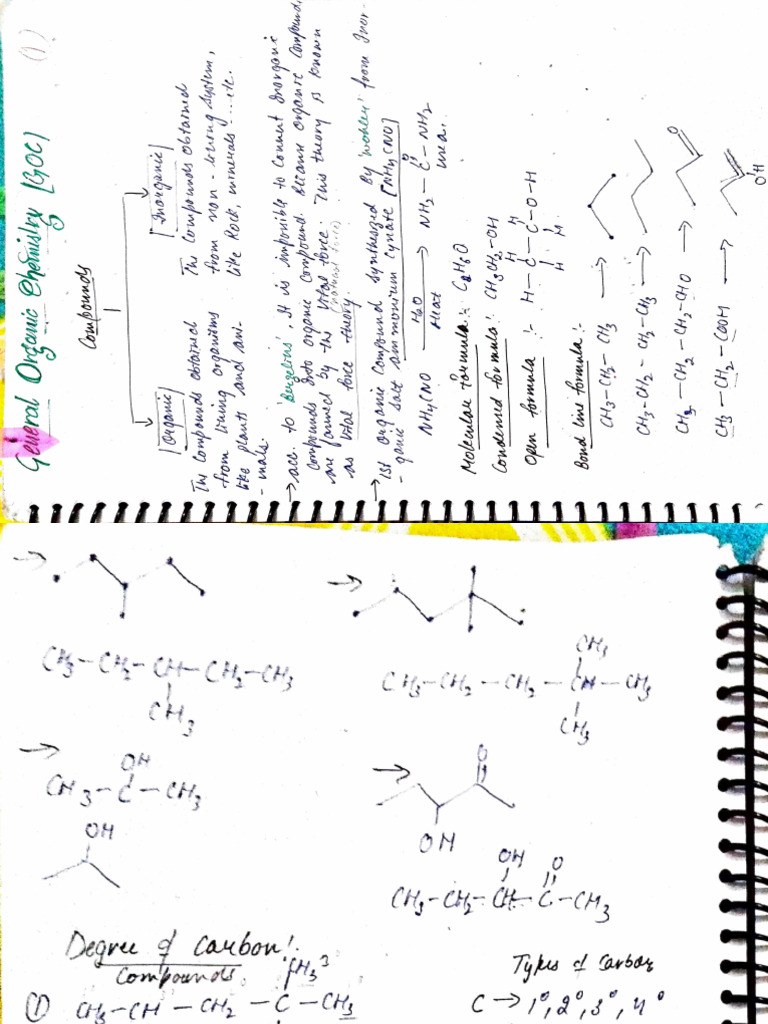 (1)
General Organic Chemistry [GOC]
Compounds
[Organic]
The Compounds obtained
from living organisms
like plants and ani-
- mals.
[Inorganic]
The Compounds obtained
from non-living system,
like Rock, minerals ... etc.
→ acc to 'Berzelius', It is impossible to Convert Inorganic
Compounds into organic Compound. Because organic Compounds
are formed by the vital force. This theory is known
(natural force)
as vital force theory
→ 1st organic Compound synthesized by 'wohler' from Inor-
- ganic salt ammonium cynate [NH4CNO]
NH4CNO H2O Heat → NH2 - C - NH2
O
urea.
Molecular formula :- C2H6O
Condensed formula :- CH3CH2-OH
Open formula :-
H H
H - C - C - O - H
H H
Bond line formula :-
CH3-CH2-CH3 →
CH3-CH2-CH2-CH3 →
CH3-CH2-CH2-CHO → O
CH3-CH2-COOH → OH
→ →
CH3-CH2-CH-CH2-CH3
CH3
CH3
CH3-CH2-CH2-CH-CH3
CH3
→ OH
CH3-C-CH3
OH
→ O
OH
OH O
CH3-CH2-CH-C-CH3
Degree of Carbon :
Compounds.
CH3
① CH3-CH-CH2-C-CH3
Types of Carbon
C → 1°, 2°, 3°, 4°